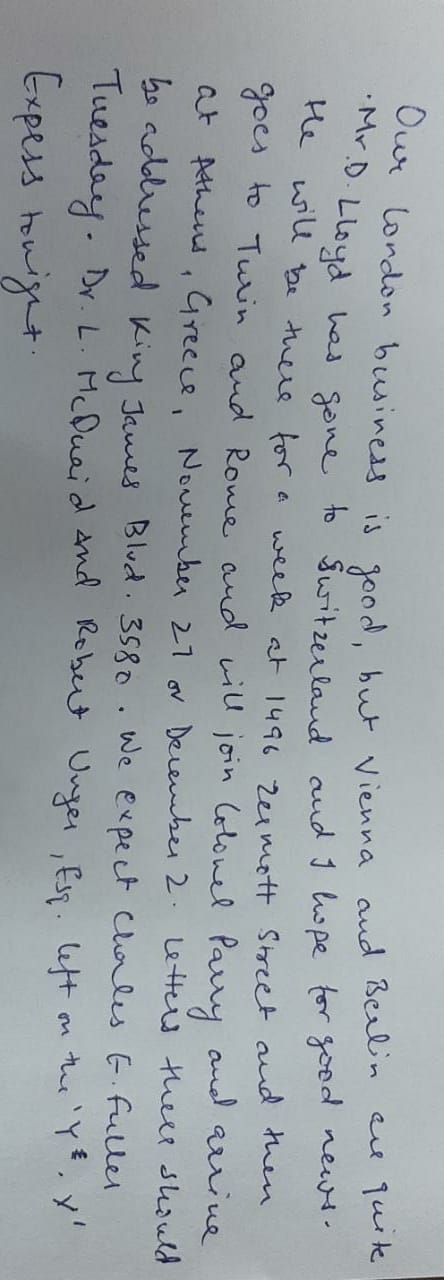 Our London business is good, but Vienna and Berlin are quite
. Mr. D. Lloyd has gone to Switzerland and I hope for good news.
He will be there for a week at 1496 Zermott Street and then
goes to Turin and Rome and will join Colonel Parry and arrive
at Athens, Greece, November 27 or December 2. Letters there should
be addressed King James Blvd. 3580. We expect Charles E. Fuller
Tuesday. Dr. L. McQuaid and Robert Unger, Esq. left on the 'Y &. Y'
Expess tonight.